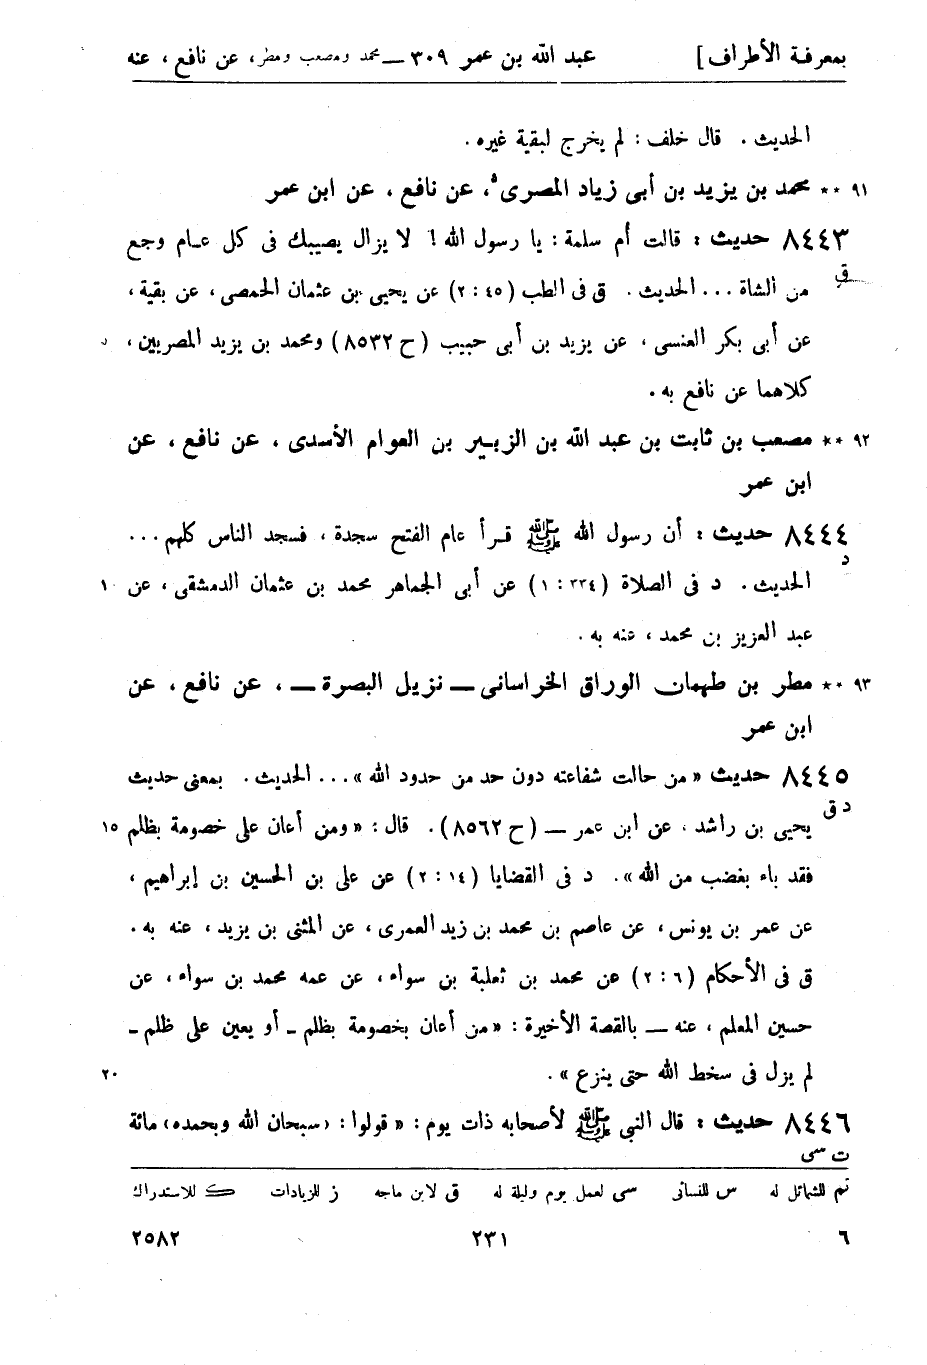 بمعرفة الأطراف] عبد الله بن عمر ٣٠٩ — محمد ومصعب ومطر، عن نافع، عنه
الحديث. قال خلف: لم يخرج لبقية غيره.
٩١ ** محمد بن يزيد بن أبى زياد المصرى، عن نافع، عن ابن عمر
٨٤٤٣ حديث: قالت أم سلمة: يا رسول الله! لا يزال يصيبك فى كل عام وجع
ق
من الشاة... الحديث. ق فى الطب (٤٥: ٢) عن يحيى بن عثمان الحمصى، عن بقية،
عن أبى بكر العنسى، عن يزيد بن أبى حبيب (ح ٨٥٣٢) ومحمد بن يزيد المصريين،
كلاهما عن نافع به.
٩٢ ** مصعب بن ثابت بن عبد الله بن الزبير بن العوام الأسدى، عن نافع، عن
ابن عمر
٨٤٤٤ حديث: أن رسول الله ﷺ قرأ عام الفتح سجدة، فسجد الناس كلهم...
د
الحديث. د فى الصلاة (٣٣٤: ١) عن أبى الجماهر محمد بن عثمان الدمشقى، عن ١٠
عبد العزيز بن محمد، عنه به.
٩٣ ** مطر بن طهمان الوراق الخراسانى — نزيل البصرة —، عن نافع، عن
ابن عمر
٨٤٤٥ حديث «من حالت شفاعته دون حد من حدود الله»... الحديث. بمعنى حديث
د ق
يحيى بن راشد، عن ابن عمر — (ح ٨٥٦٢). قال: «ومن أعان على خصومة بظلم ١٥
فقد باء بغضب من الله». د فى القضايا (١٤: ٢) عن على بن الحسين بن إبراهيم،
عن عمر بن يونس، عن عاصم بن محمد بن زيد العمرى، عن المثنى بن يزيد، عنه به.
ق فى الأحكام (٦: ٢) عن محمد بن ثعلبة بن سواء، عن عمه محمد بن سواء، عن
حسين المعلم، عنه — بالقصة الأخيرة: «من أعان بخصومة بظلم - أو يعين على ظلم -
لم يزل فى سخط الله حتى ينزع». ٢٠
٨٤٤٦ حديث: قال النبي ﷺ لأصحابه ذات يوم: «قولوا: (سبحان الله وبحمده) مائة
ت سى
تم للشمائل له س للنسائى سى لعمل يوم وليلة له ق لابن ماجه ز للزيادات ك للاستدراك
٦ ٢٣١ ٢٥٨٢